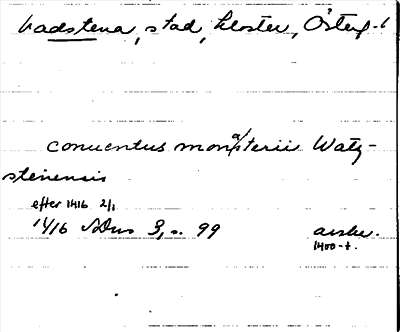 Vadstena, stad, kloster, Österg-l
conuentus monasterii Watz-
stenensis
efter 1416 2/1
1416 SDns 3, s. 99 avskr.
1400-t.